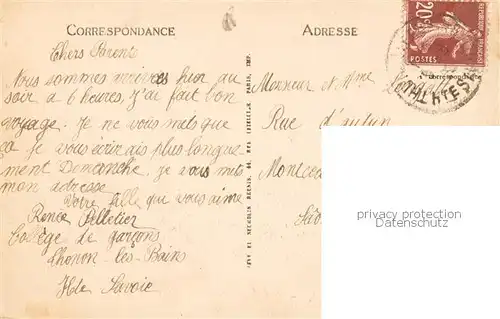 CORRESPONDANCE
Chers Parents
Nous sommes arrivées hier au
soir a 6 heures, j'ai fait bon
voyage. Je ne vous mets que
ça Je vous ecrirais plus longue
ment Demanche. je vous mets
mon adresse
Votre fille qui vous aime
Renée Pelletier
Collège de garçons
Thonon-les-Bains
Hte Savoie
ADRESSE
Monsieur et Mme
Rue d'autun
Montceau
Saô
20c
REPUBLIQUE FRANÇAISE
POSTES
privacy protection
Datenschutz